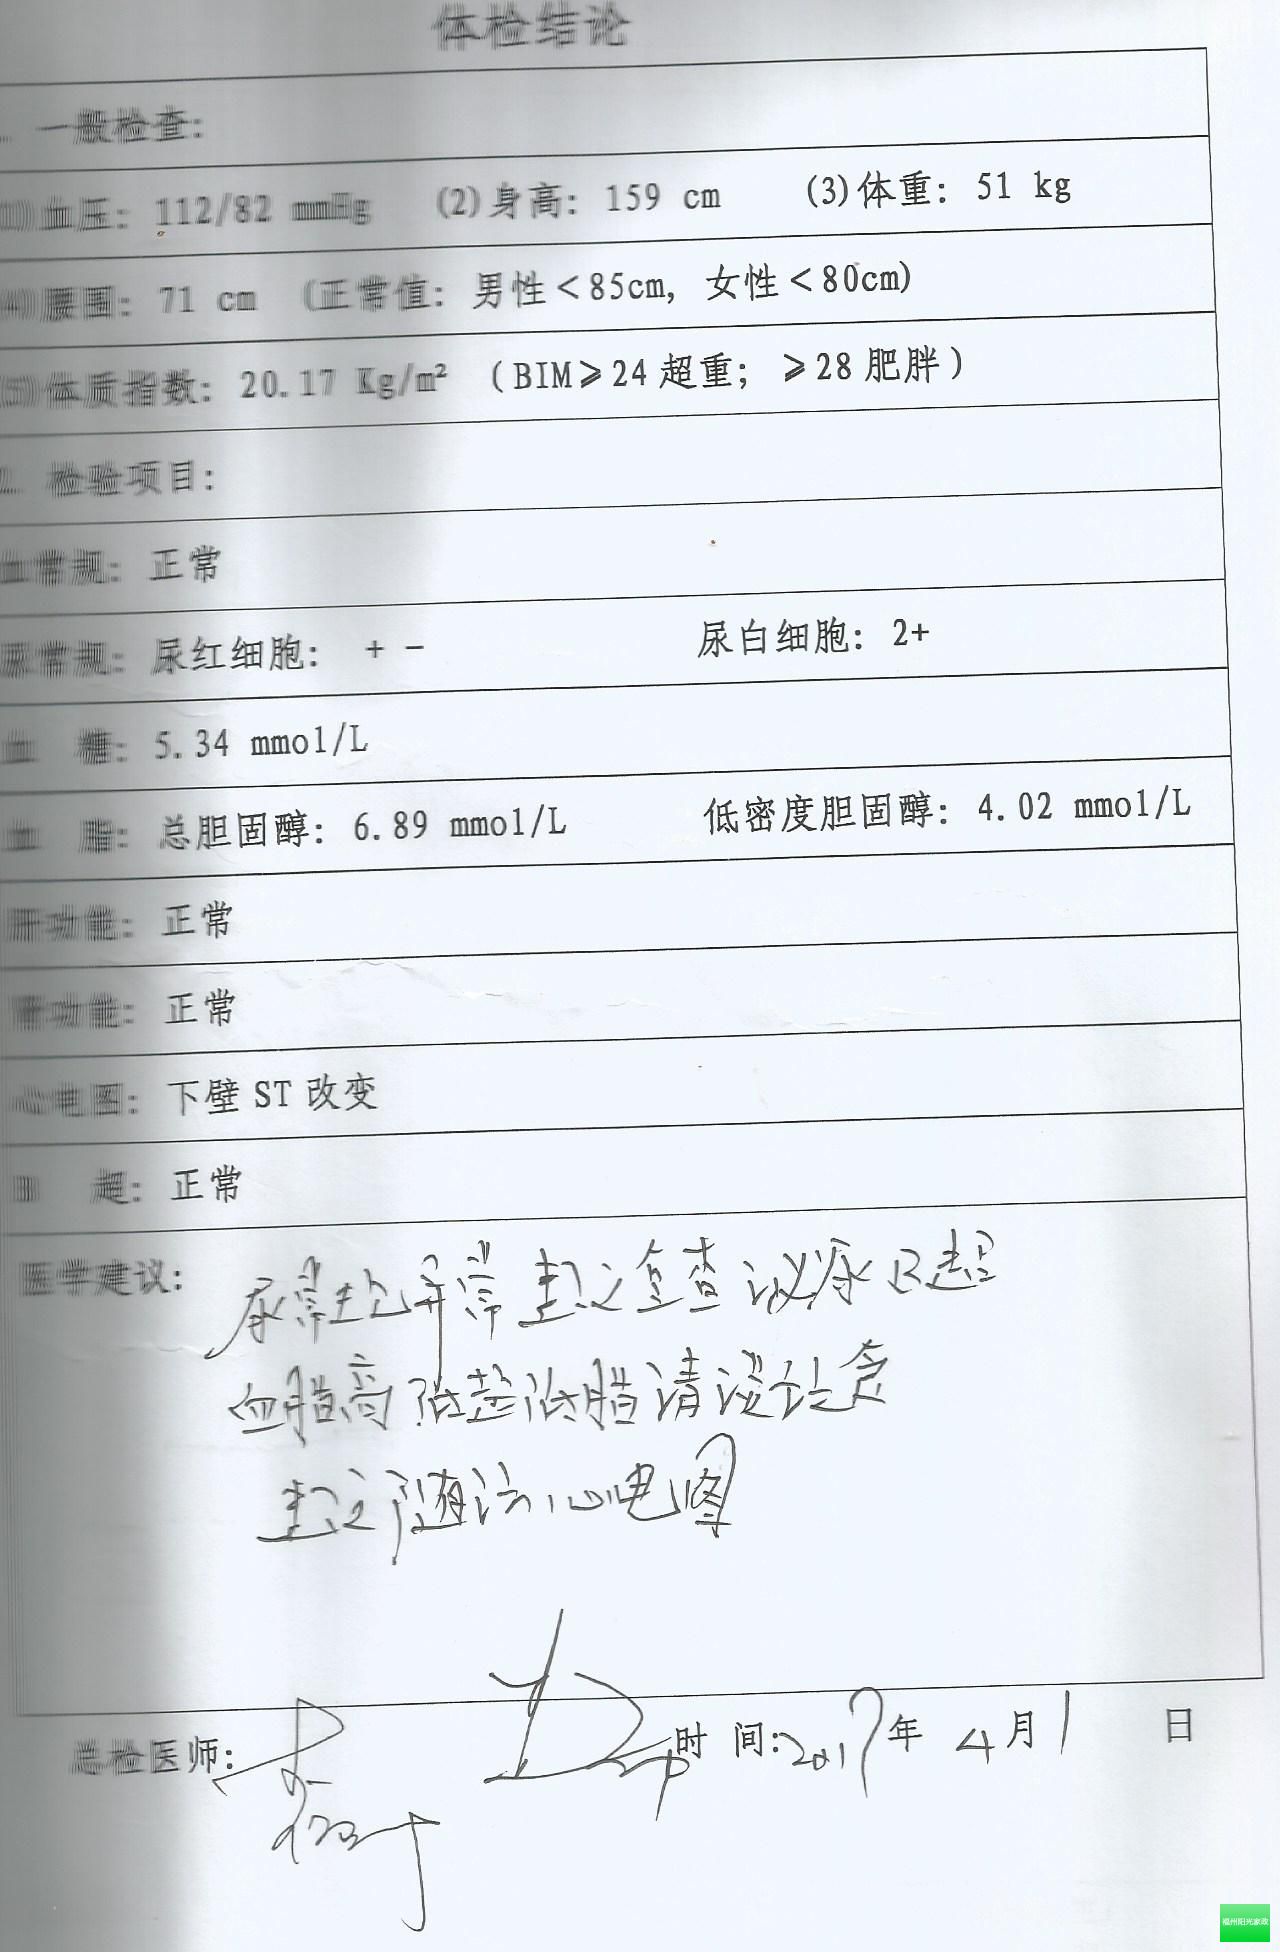 体检结论
一般检查:
血压: 112/82 mmHg (2)身高: 159 cm (3)体重: 51 kg
腰围: 71 cm (正常值: 男性<85cm, 女性<80cm)
(5)体质指数: 20.17 Kg/m² (BIM≥24 超重; ≥28 肥胖)
2. 检验项目:
血常规: 正常
尿常规: 尿红细胞: + - 尿白细胞: 2+
血 糖: 5.34 mmol/L
血 脂: 总胆固醇: 6.89 mmol/L 低密度胆固醇: 4.02 mmol/L
肝功能: 正常
肾功能: 正常
心电图: 下壁 ST 改变
B 超: 正常
医学建议: 尿常规异常 建议复查 泌尿B超
血脂高 低盐低脂清淡饮食
建议随访心电图
总检医师: 时 间:2017年 4月1 日
福州阳光家政